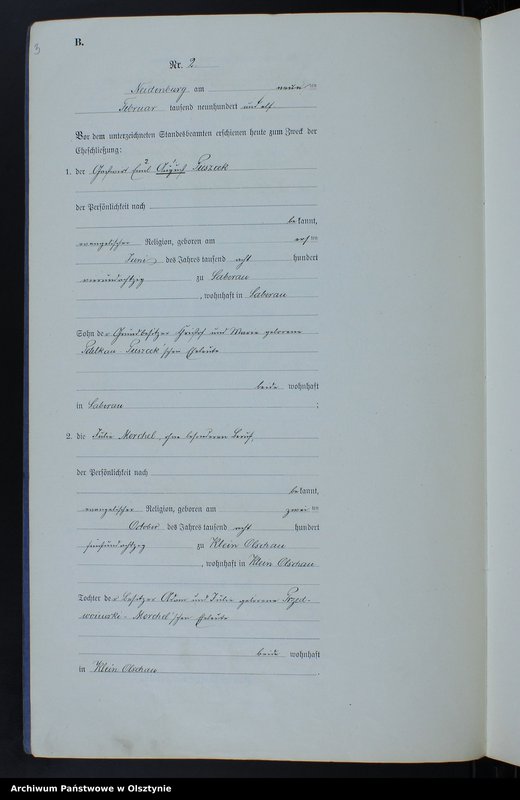 3
B.
Nr. 2
Neidenburg am neunten
Februar tausend neunhundert und elf
Vor dem unterzeichneten Standesbeamten erschienen heute zum Zweck der
Eheschließung:
1. der Gastwirt Emil 2 August 1 Puszeck
der Persönlichkeit nach
bekannt,
evangelischer Religion, geboren am ersten
Juni des Jahres tausend acht hundert
vierundachtzig zu Saberau
, wohnhaft in Saberau
Sohn der Grundbesitzer und Marie geborene
Puszeck'schen Eheleute
beide wohnhaft
in Saberau ;
2. die Julie Morchel, ohne besonderen Beruf,
der Persönlichkeit nach
bekannt,
evangelischer Religion, geboren am zweiten
October des Jahres tausend acht hundert
fünfundachtzig zu Klein Olschau
, wohnhaft in Klein Olschau
Tochter der Besitzer Adam und Julie geborene
Morchel'schen Eheleute
beide wohnhaft
in Klein Olschau .
Archiwum Państwowe w Olsztynie